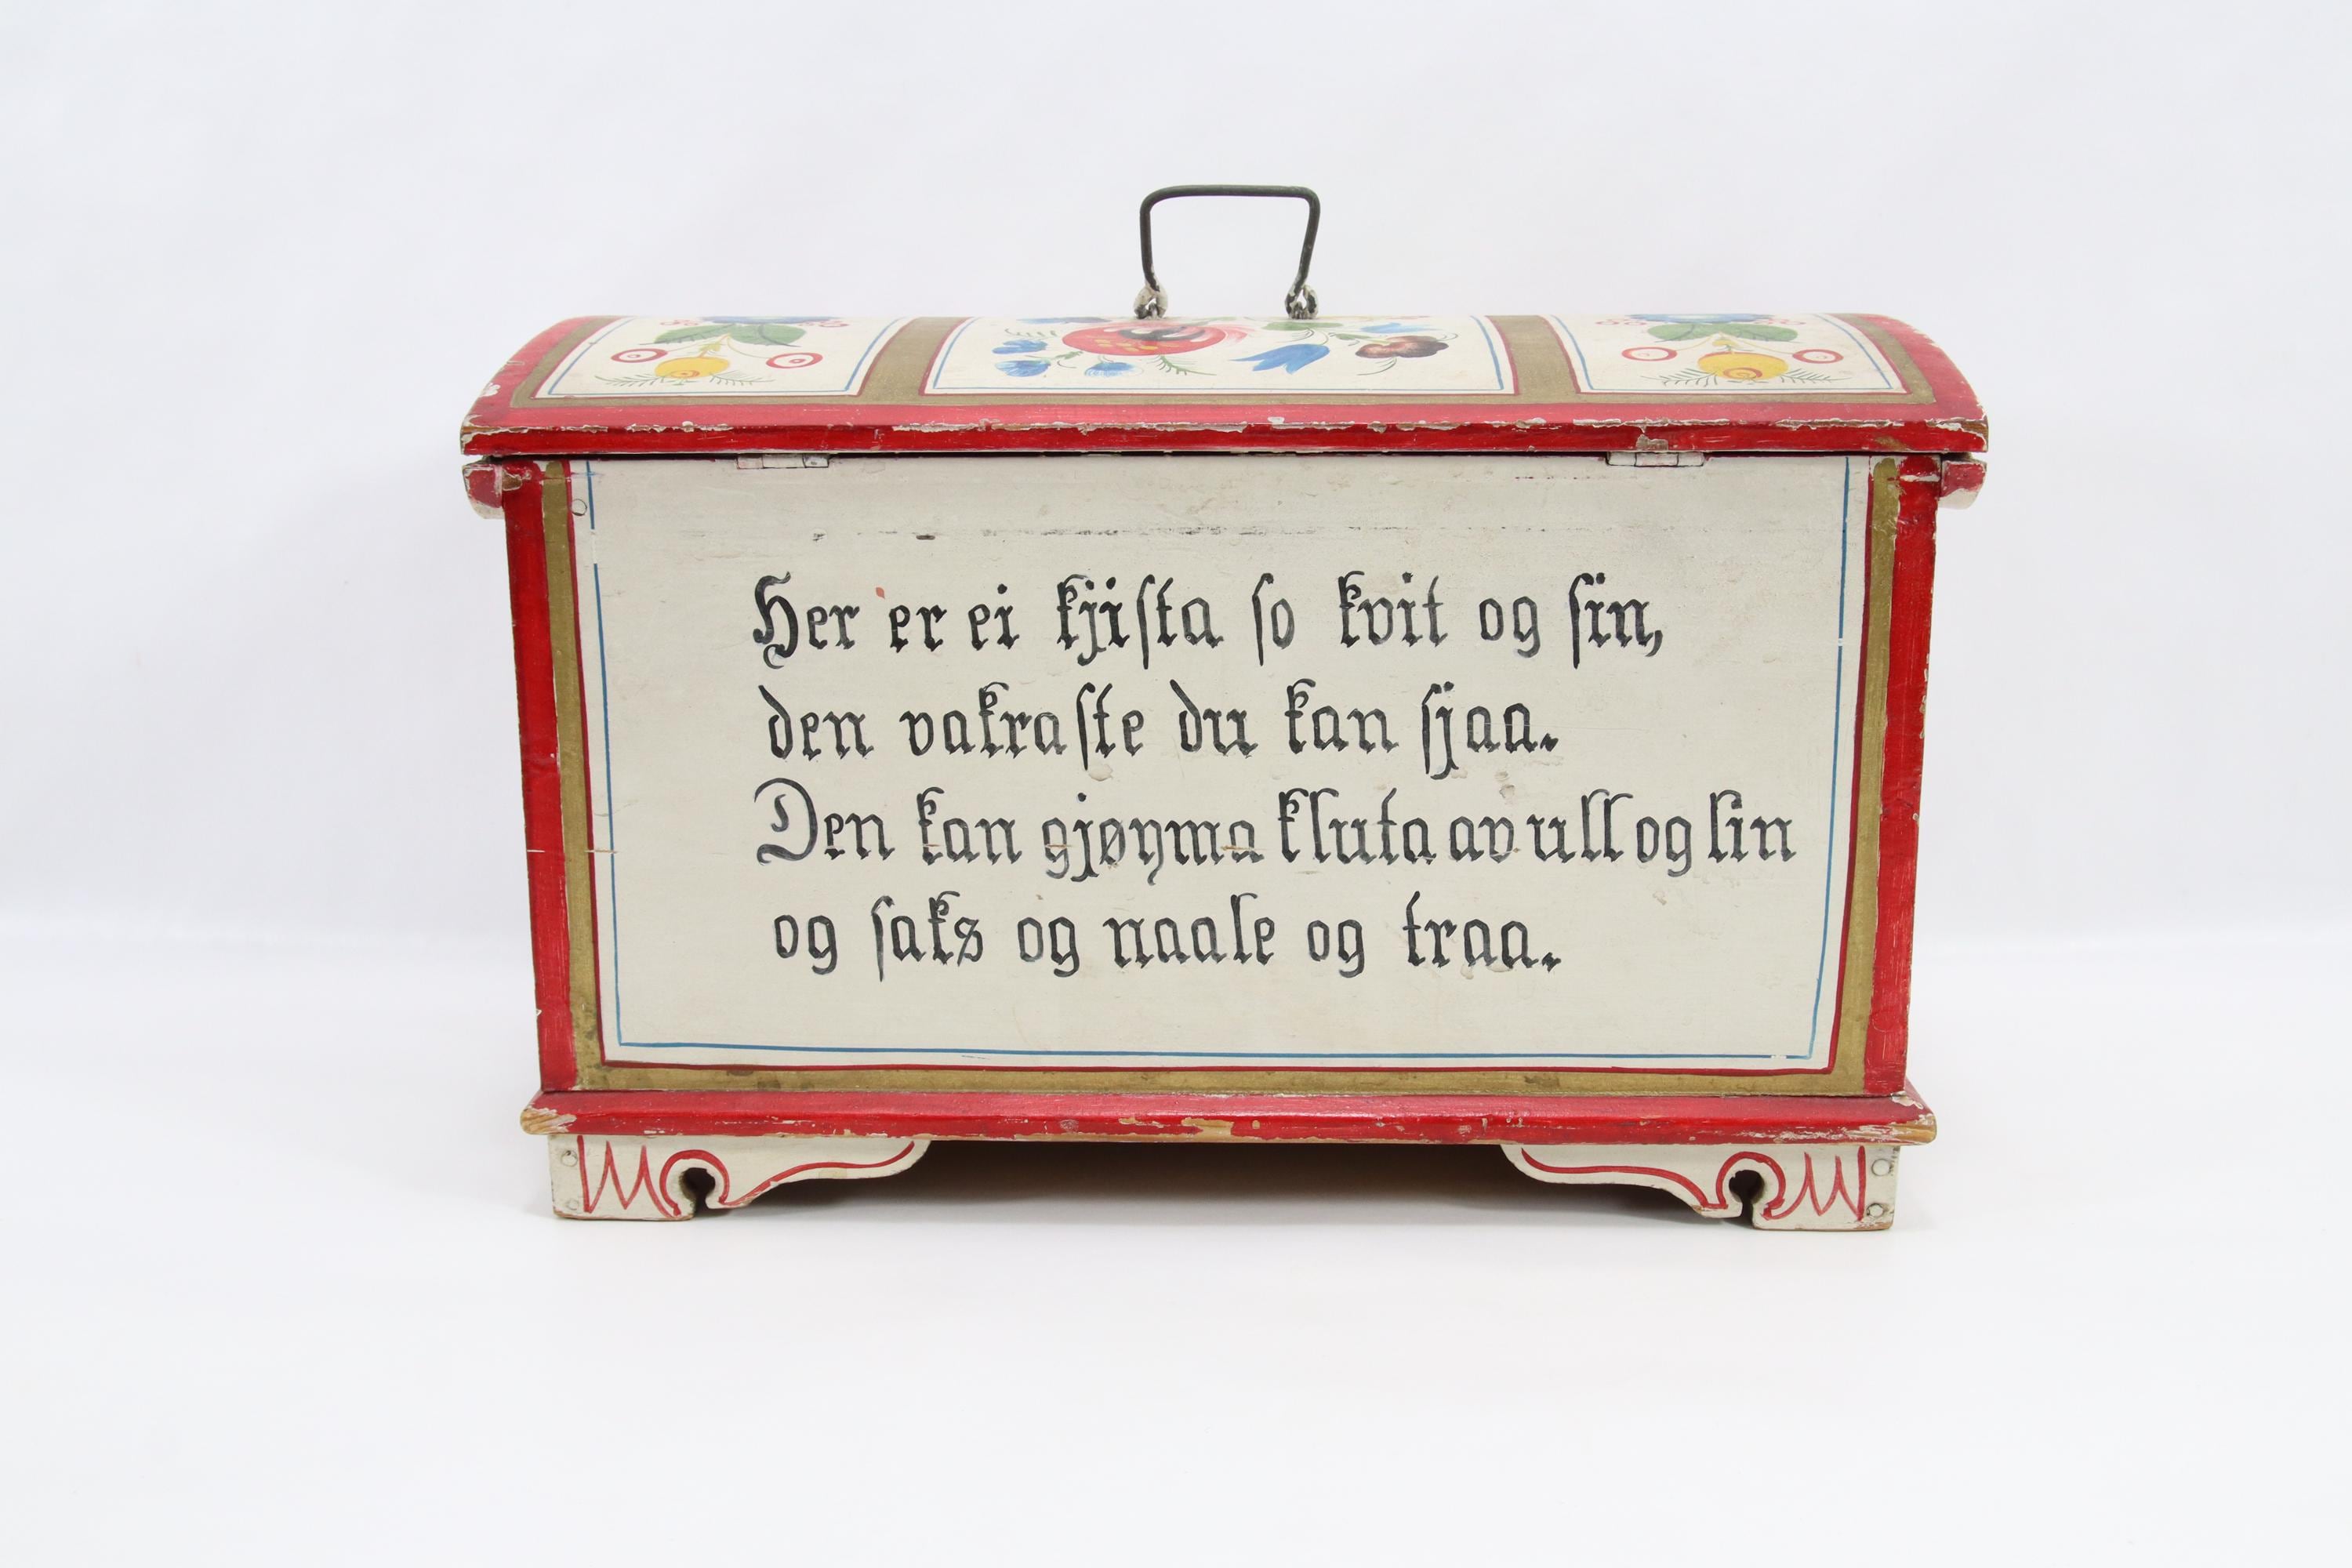 Her er ei kjista so kvit og fin,
den vakraste du kan sjaa.
Den kan gjøyma kluta av ull og lin
og saks og naale og traa.